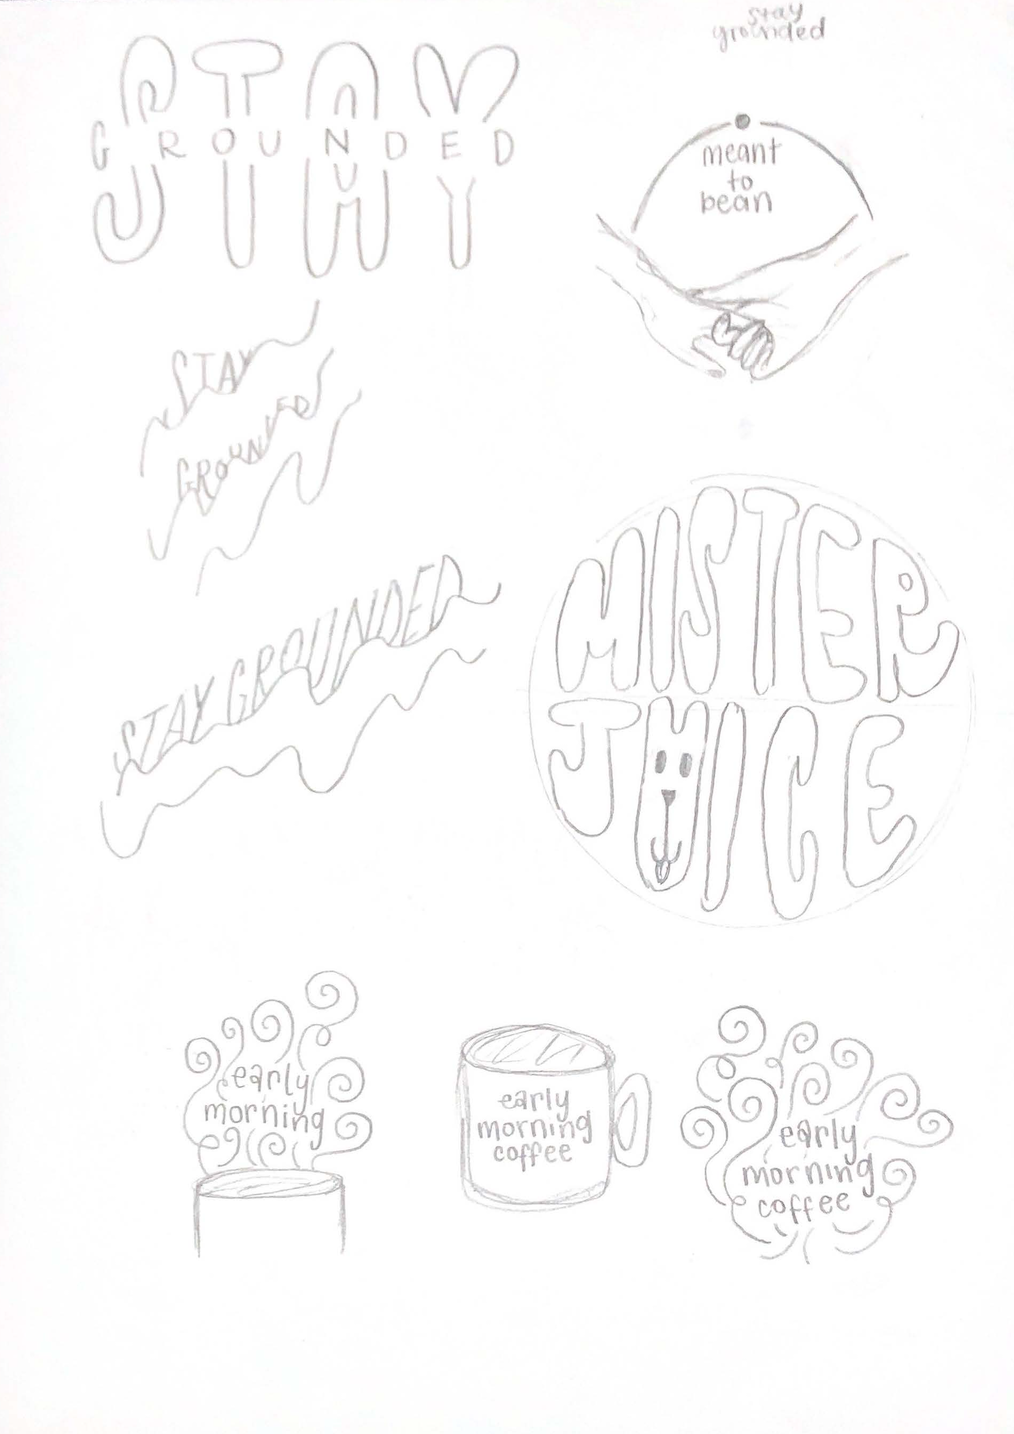 stay
grounded
STAY
GROUNDED
meant
to
bean
STAY
GROUNDED
STAY GROUNDED
MISTER
JUICE
early
morning
early
morning
coffee
early
morning
coffee